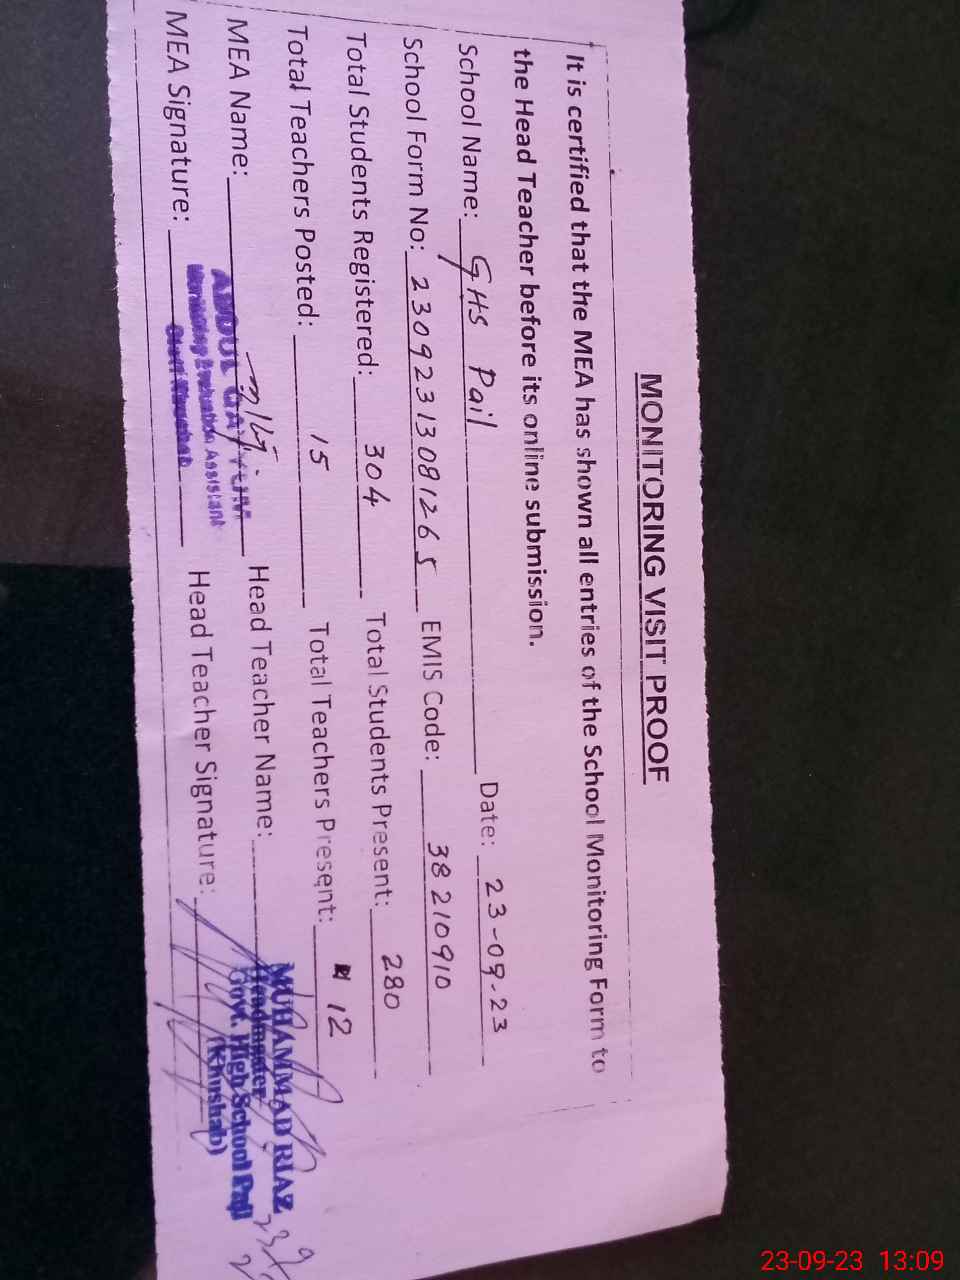 MONITORING VISIT PROOF
It is certified that the MEA has shown all entries of the School Monitoring Form to
the Head Teacher before its online submission.
School Name: GHS Pail Date: 23-09-23
School Form No: 23092313081265 EMIS Code: 38210910
Total Students Registered: 304 Total Students Present: 280
Total Teachers Posted: 15 Total Teachers Present: 12
MEA Name: ABDUL QAYYUM Head Teacher Name: MUHAMMAD RIAZ
Monitoring Evaluation Assistant Headmaster
MEA Signature: Head Teacher Signature: Govt. High School Pail
(Khushab)
23-09-23 13:09